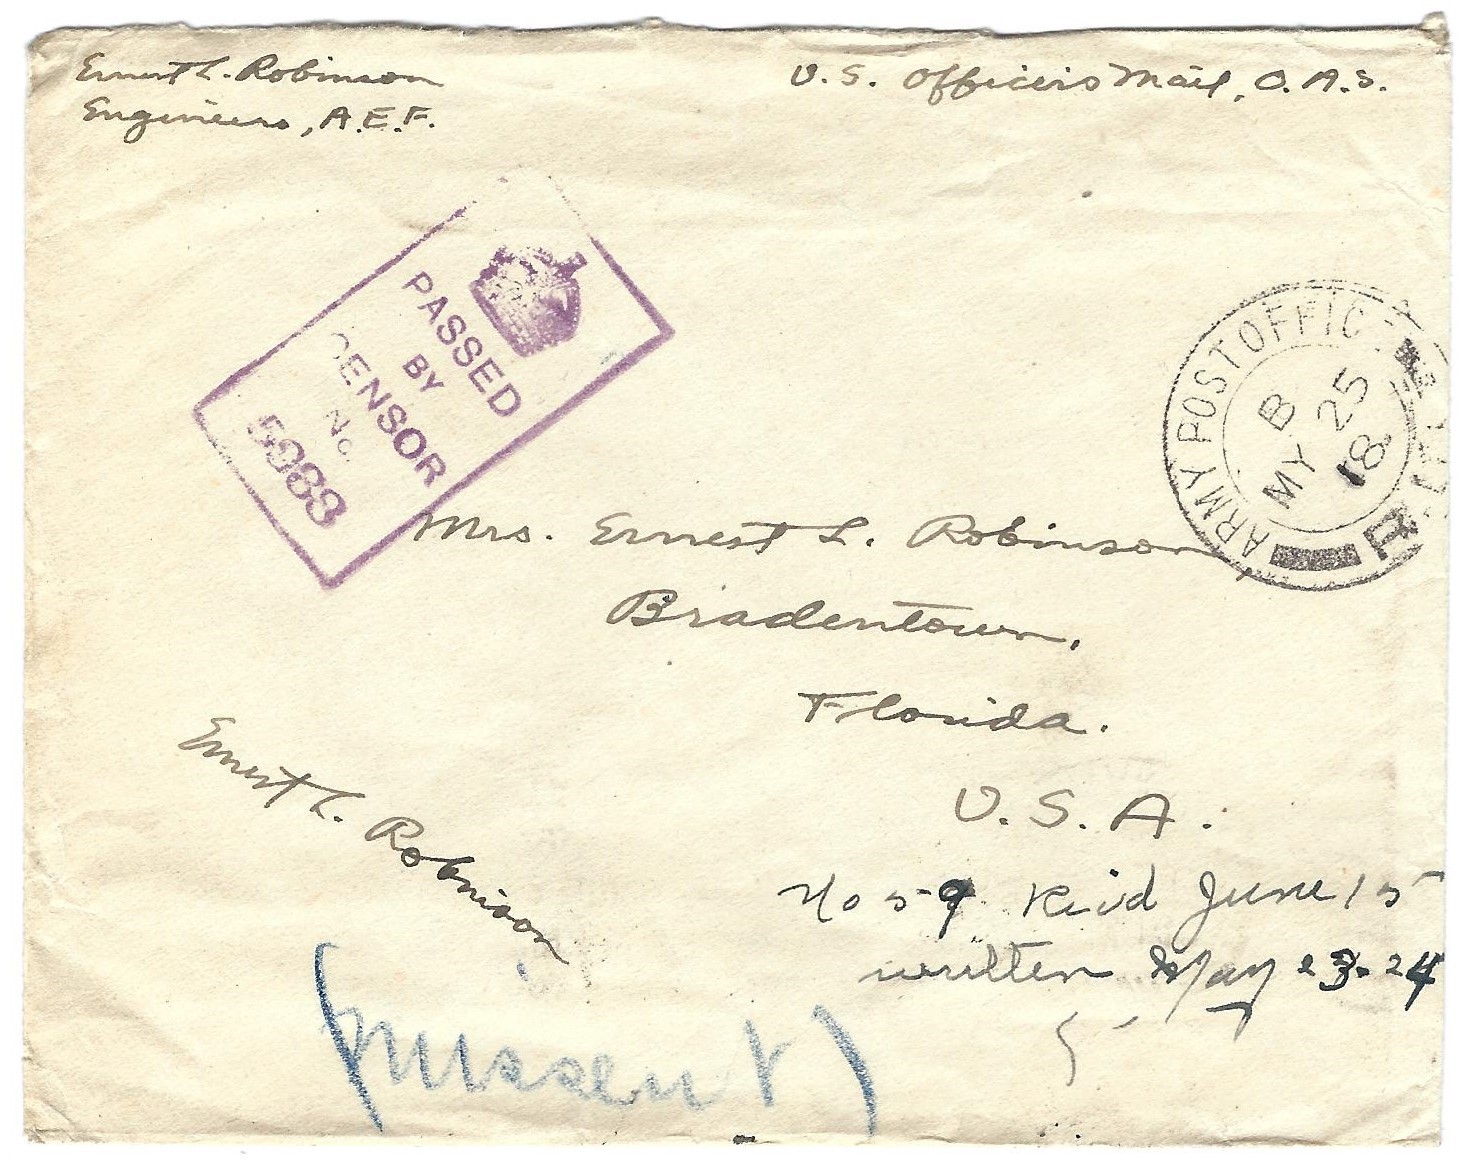 Ernest L. Robinson
Engineers, A.E.F.
U. S. Officers Mail, O. A. S.
PASSED
BY
CENSOR
No.
ARMY POST OFFICE
B
MY 25
18
Mrs. Ernest L. Robinson
Bradentown,
Florida.
U. S. A.
Ernest L. Robinson
No 59 Recvd June 15
written May 23-24
(Missent)